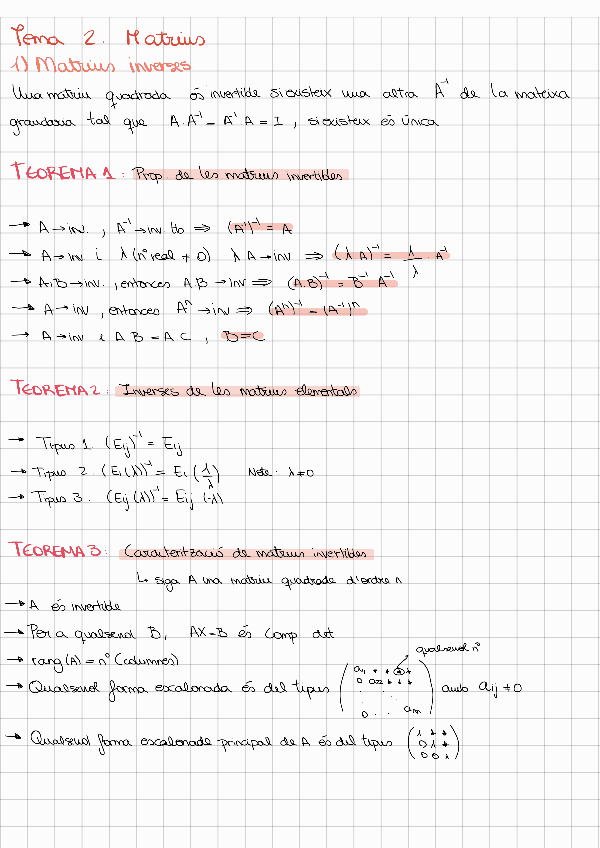 Tema 2. Matrius
1) Matrius inverses
Una matriu quadrada és invertible si existeix una altra A⁻¹ de la mateixa
grandaria tal que A·A⁻¹ = A⁻¹·A = I, si existeix és única
TEOREMA 1: Prop de les matrius invertibles
→ A→inv., A⁻¹→inv. ⇒ (A⁻¹)⁻¹ = A
→ A→inv i λ(nº real ≠ 0) λA→inv ⇒ (λA)⁻¹ = 1/λ · A⁻¹
→ A,B→inv., entonces A·B→inv ⇒ (A·B)⁻¹ = B⁻¹ A⁻¹
→ A→inv, entonces Aⁿ→inv ⇒ (Aⁿ)⁻¹ = (A⁻¹)ⁿ
→ A→inv i A·B = A·C, B=C
TEOREMA 2: Inverses de les matrius elementals
→ Tipus 1. (Eij)⁻¹ = Eij
→ Tipus 2. (Ei(λ))⁻¹ = Ei(1/λ) Note: λ≠0
→ Tipus 3. (Eij(λ))⁻¹ = Eij(-λ)
TEOREMA 3: Caracterització de matrius invertibles
↳ siga A una matriu quadrada d'ordre n
→ A és invertible
→ Per a qualsevol B, AX=B és comp det
→ rang(A) = nº (columnes)
qualsevol nº
→ Qualsevol forma escalonada és del tipus (a₁₁ * * * / 0 a₂₂ * * * / 0 . . aₙₙ) amb aij ≠ 0
→ Qualsevol forma escalonada principal de A és del tipus (1 * * / 0 1 * / 0 0 1)